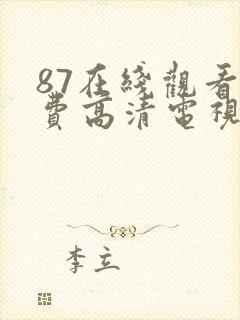 87在綫觀看
費高清電視
李立